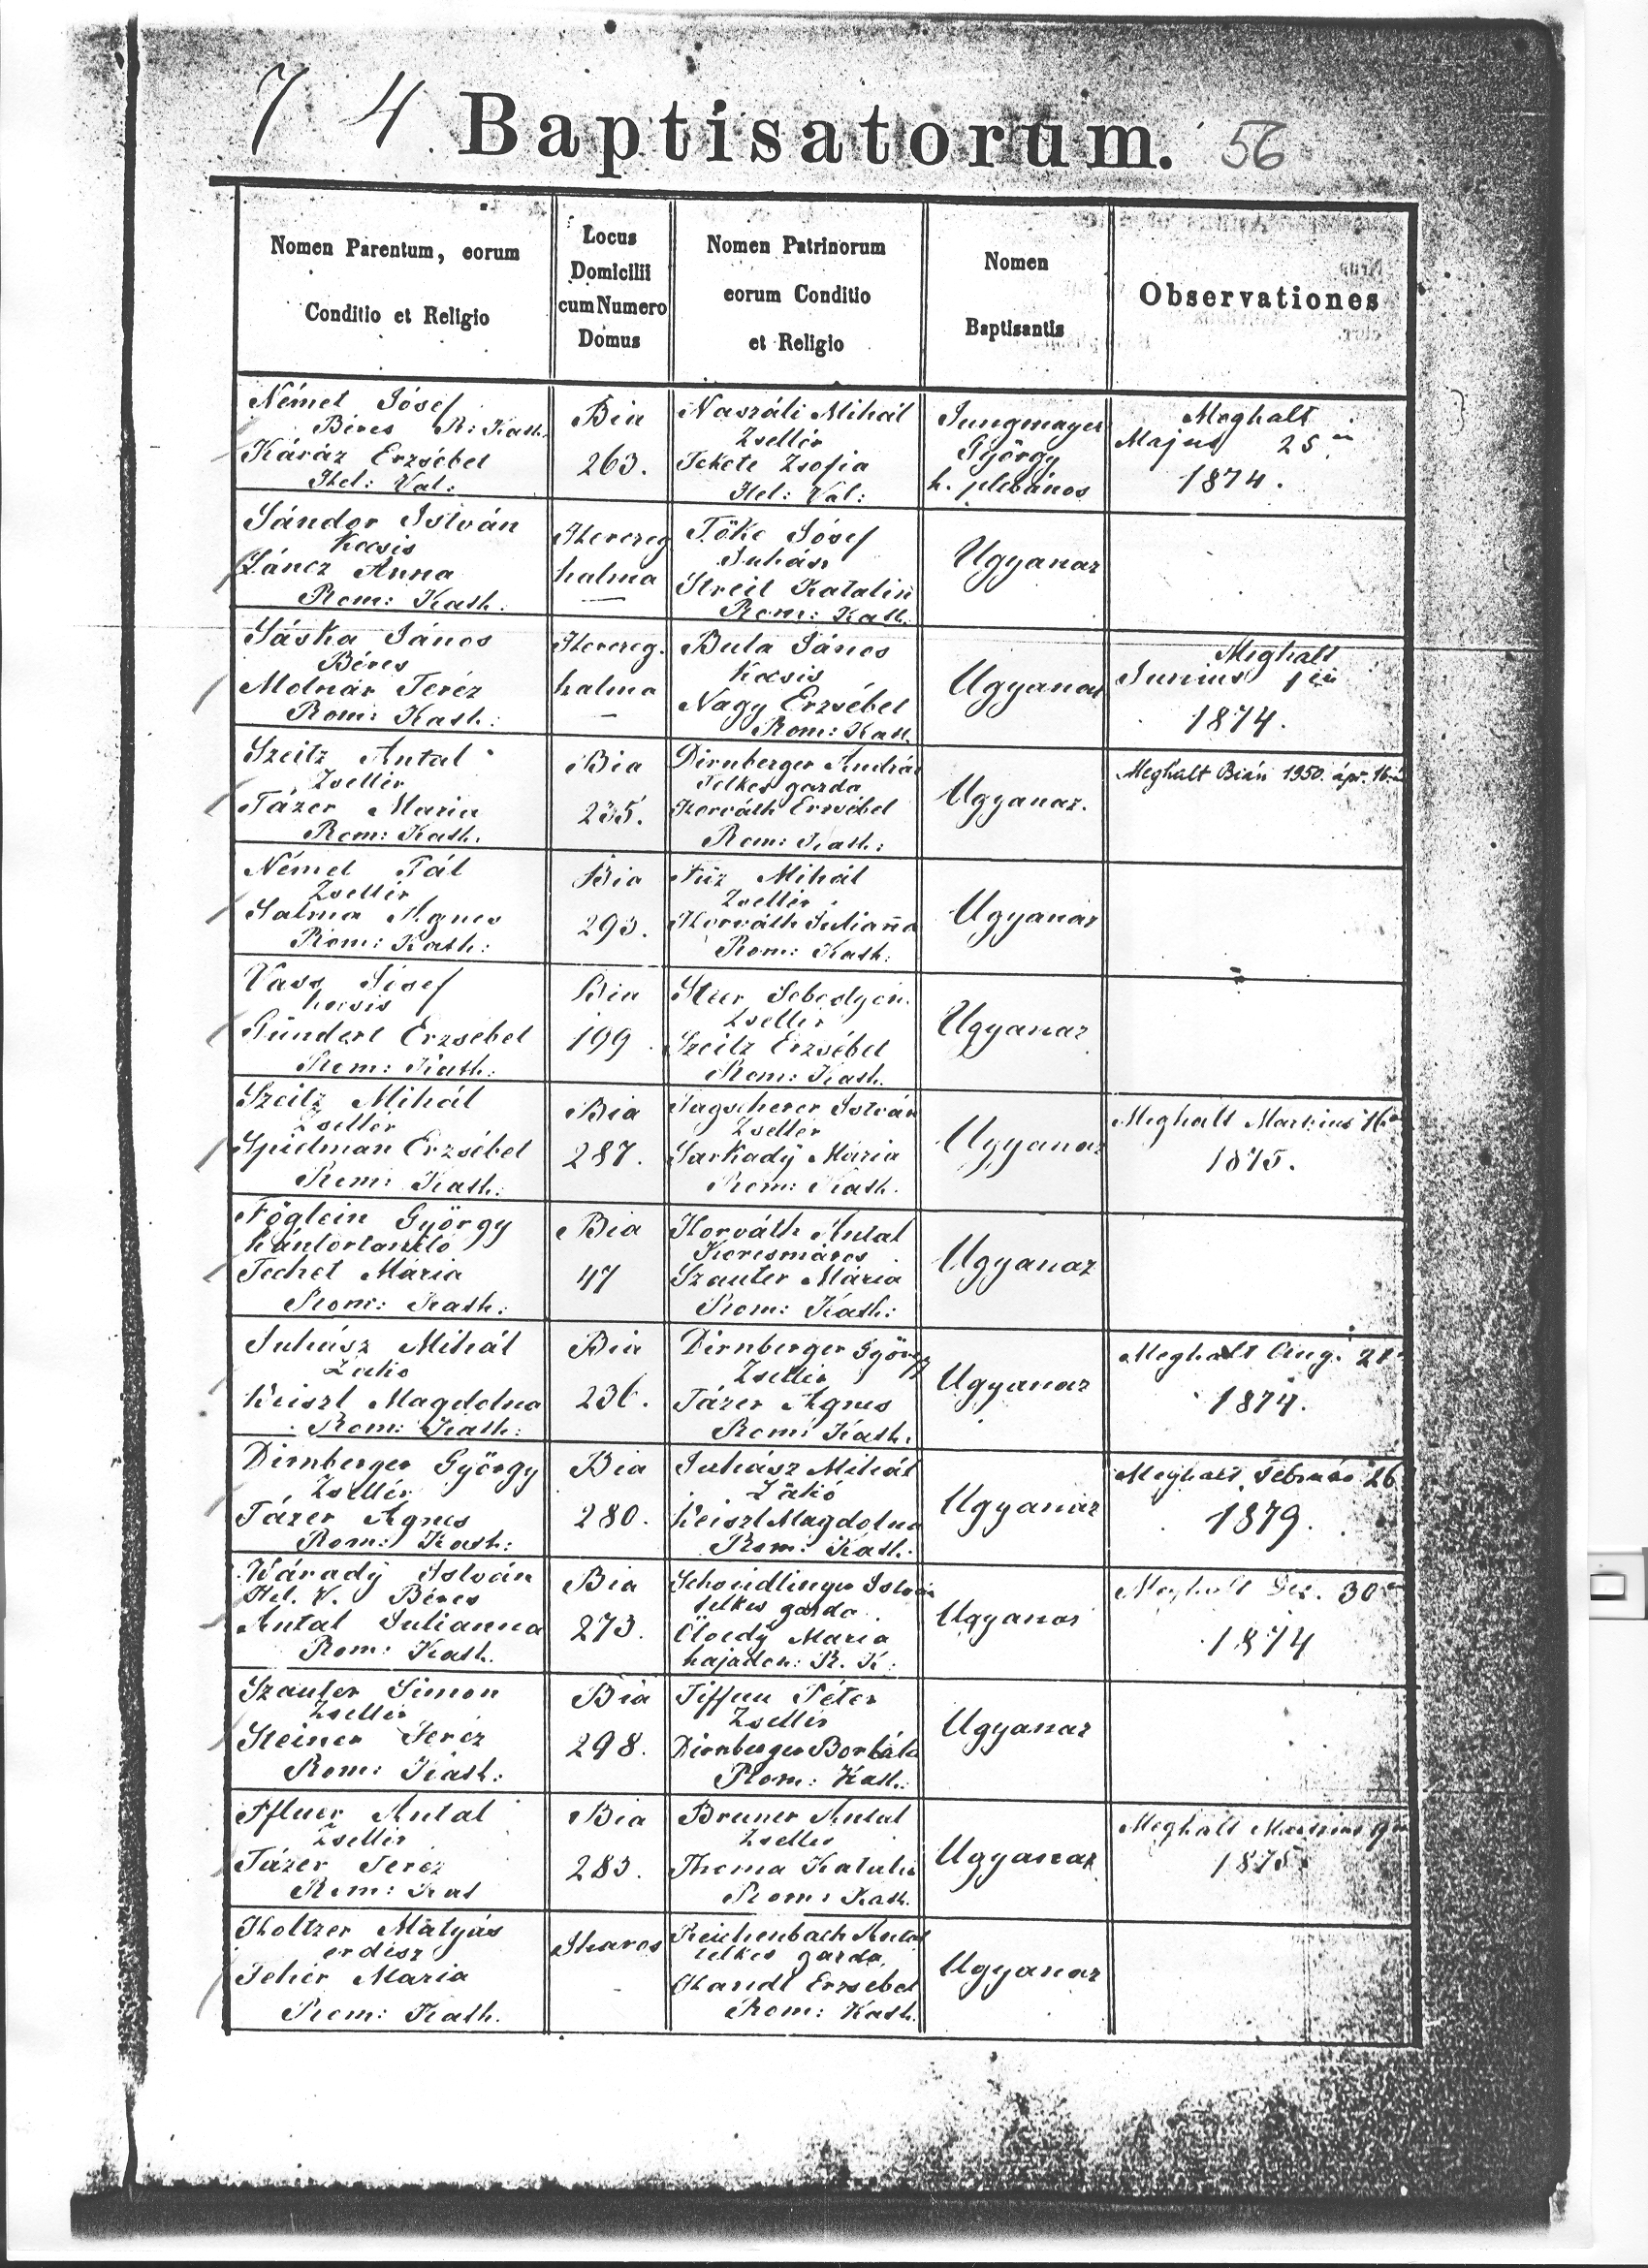 74 Baptisatorum. 56
Nomen Parentum, eorum
Conditio et Religio
Locus
Domicilii
cum Numero
Domus
Nomen Patrinorum
eorum Conditio
et Religio
Nomen
Baptisantis
Observationes
Német Jósef
Béres R: Kath.
Káráz Erzsébet
Hel: Val:
Bia
263.
Naszáli Mihál
Zsellér
Fekete Zsofia
Hel: Val:
Jungmayer
György
h. plébános
Meghalt
Majus 25én
1874.
Sándor István
Kocsis
Láncz Anna
Rom: Kath.
Herczeg
halma
Tőke Jósef
Juhász
Streit Katalin
Rom: Kath.
Ugyanaz
Sáska János
Béres
Molnár Teréz
Rom: Kath:
Herczeg.
halma
Bula János
Kocsis
Nagy Erzsébet
Rom: Kath.
Ugyanaz
Meghalt
Junius 1én
1874.
Szeitz Antal
Zsellér
Tázer Maria
Rom: Kath.
Bia
235.
Dirnberger András
Telkes gazda
Horváth Erzsébet
Rom: Kath:
Ugyanaz.
Meghalt Bián 1950. ápr. 16.án
Német Pál
Zsellér
Salma Agnes
Rom: Kath:
Bia
293.
Füz Mihál
Zsellér
Horváth Julianna
Rom: Kath:
Ugyanaz
Vass Jósef
kocsis
Erzsébet
Rom: Kath:
Bia
199
Steer Sebestyén
Zsellér
Szeitz Erzsébet
Rom: Kath.
Ugyanaz
Szeitz Mihál
Zsellér
Spielman Erzsébet
Rom: Kath:
Bia
287.
Tagscherer István
Zsellér
Sarkady Mária
Rom: Kath.
Ugyanaz
Meghalt Martius 16án
1875.
Föglein György
kántortanító
Techet Mária
Rom: Kath:
Bia
47
Horváth Antal
Korcsmáros
Szauter Mária
Rom: Kath:
Ugyanaz
Juhász Mihál
Keiszt Magdolna
Rom: Kath:
Bia
236.
Dirnberger György
Zsellér
Tázer Agnes
Rom: Kath.
Ugyanaz
Meghalt Aug.
1874.
Dirnberger György
Zsellér
Tázer Agnes
Rom: Kath:
Bia
280.
Juhász Mihál
Keiszt Magdolna
Rom: Kath:
Ugyanaz
Meghalt Február 26
1879.
Várady István
Hel. V. Béres
Antal Julianna
Rom: Kath.
Bia
273.
Scheidlinger István
telkes gazda
Mária
hajadon: R. K:
Ugyanaz
Meghalt Dec. 30
1874
Szauter Simon
Zsellér
Steiner Teréz
Rom: Kath:
Bia
298.
Tiffnu Péter
Zsellér
Dirnberger Borbála
Rom: Kath:
Ugyanaz
Antal
Zsellér
Tázer Teréz
Rom: Kat
Bia
283.
Bruner Antal
Zsellér
Thoma Katalin
Rom: Kath.
Ugyanaz
Meghalt Martius 9én
Holtzer Mátyás
erdész
Fehér Maria
Rom: Kath.
Iharos
Reichenbach Antal
telkes gazda,
Handl Erzsébet
Rom: Kath.
Ugyanaz